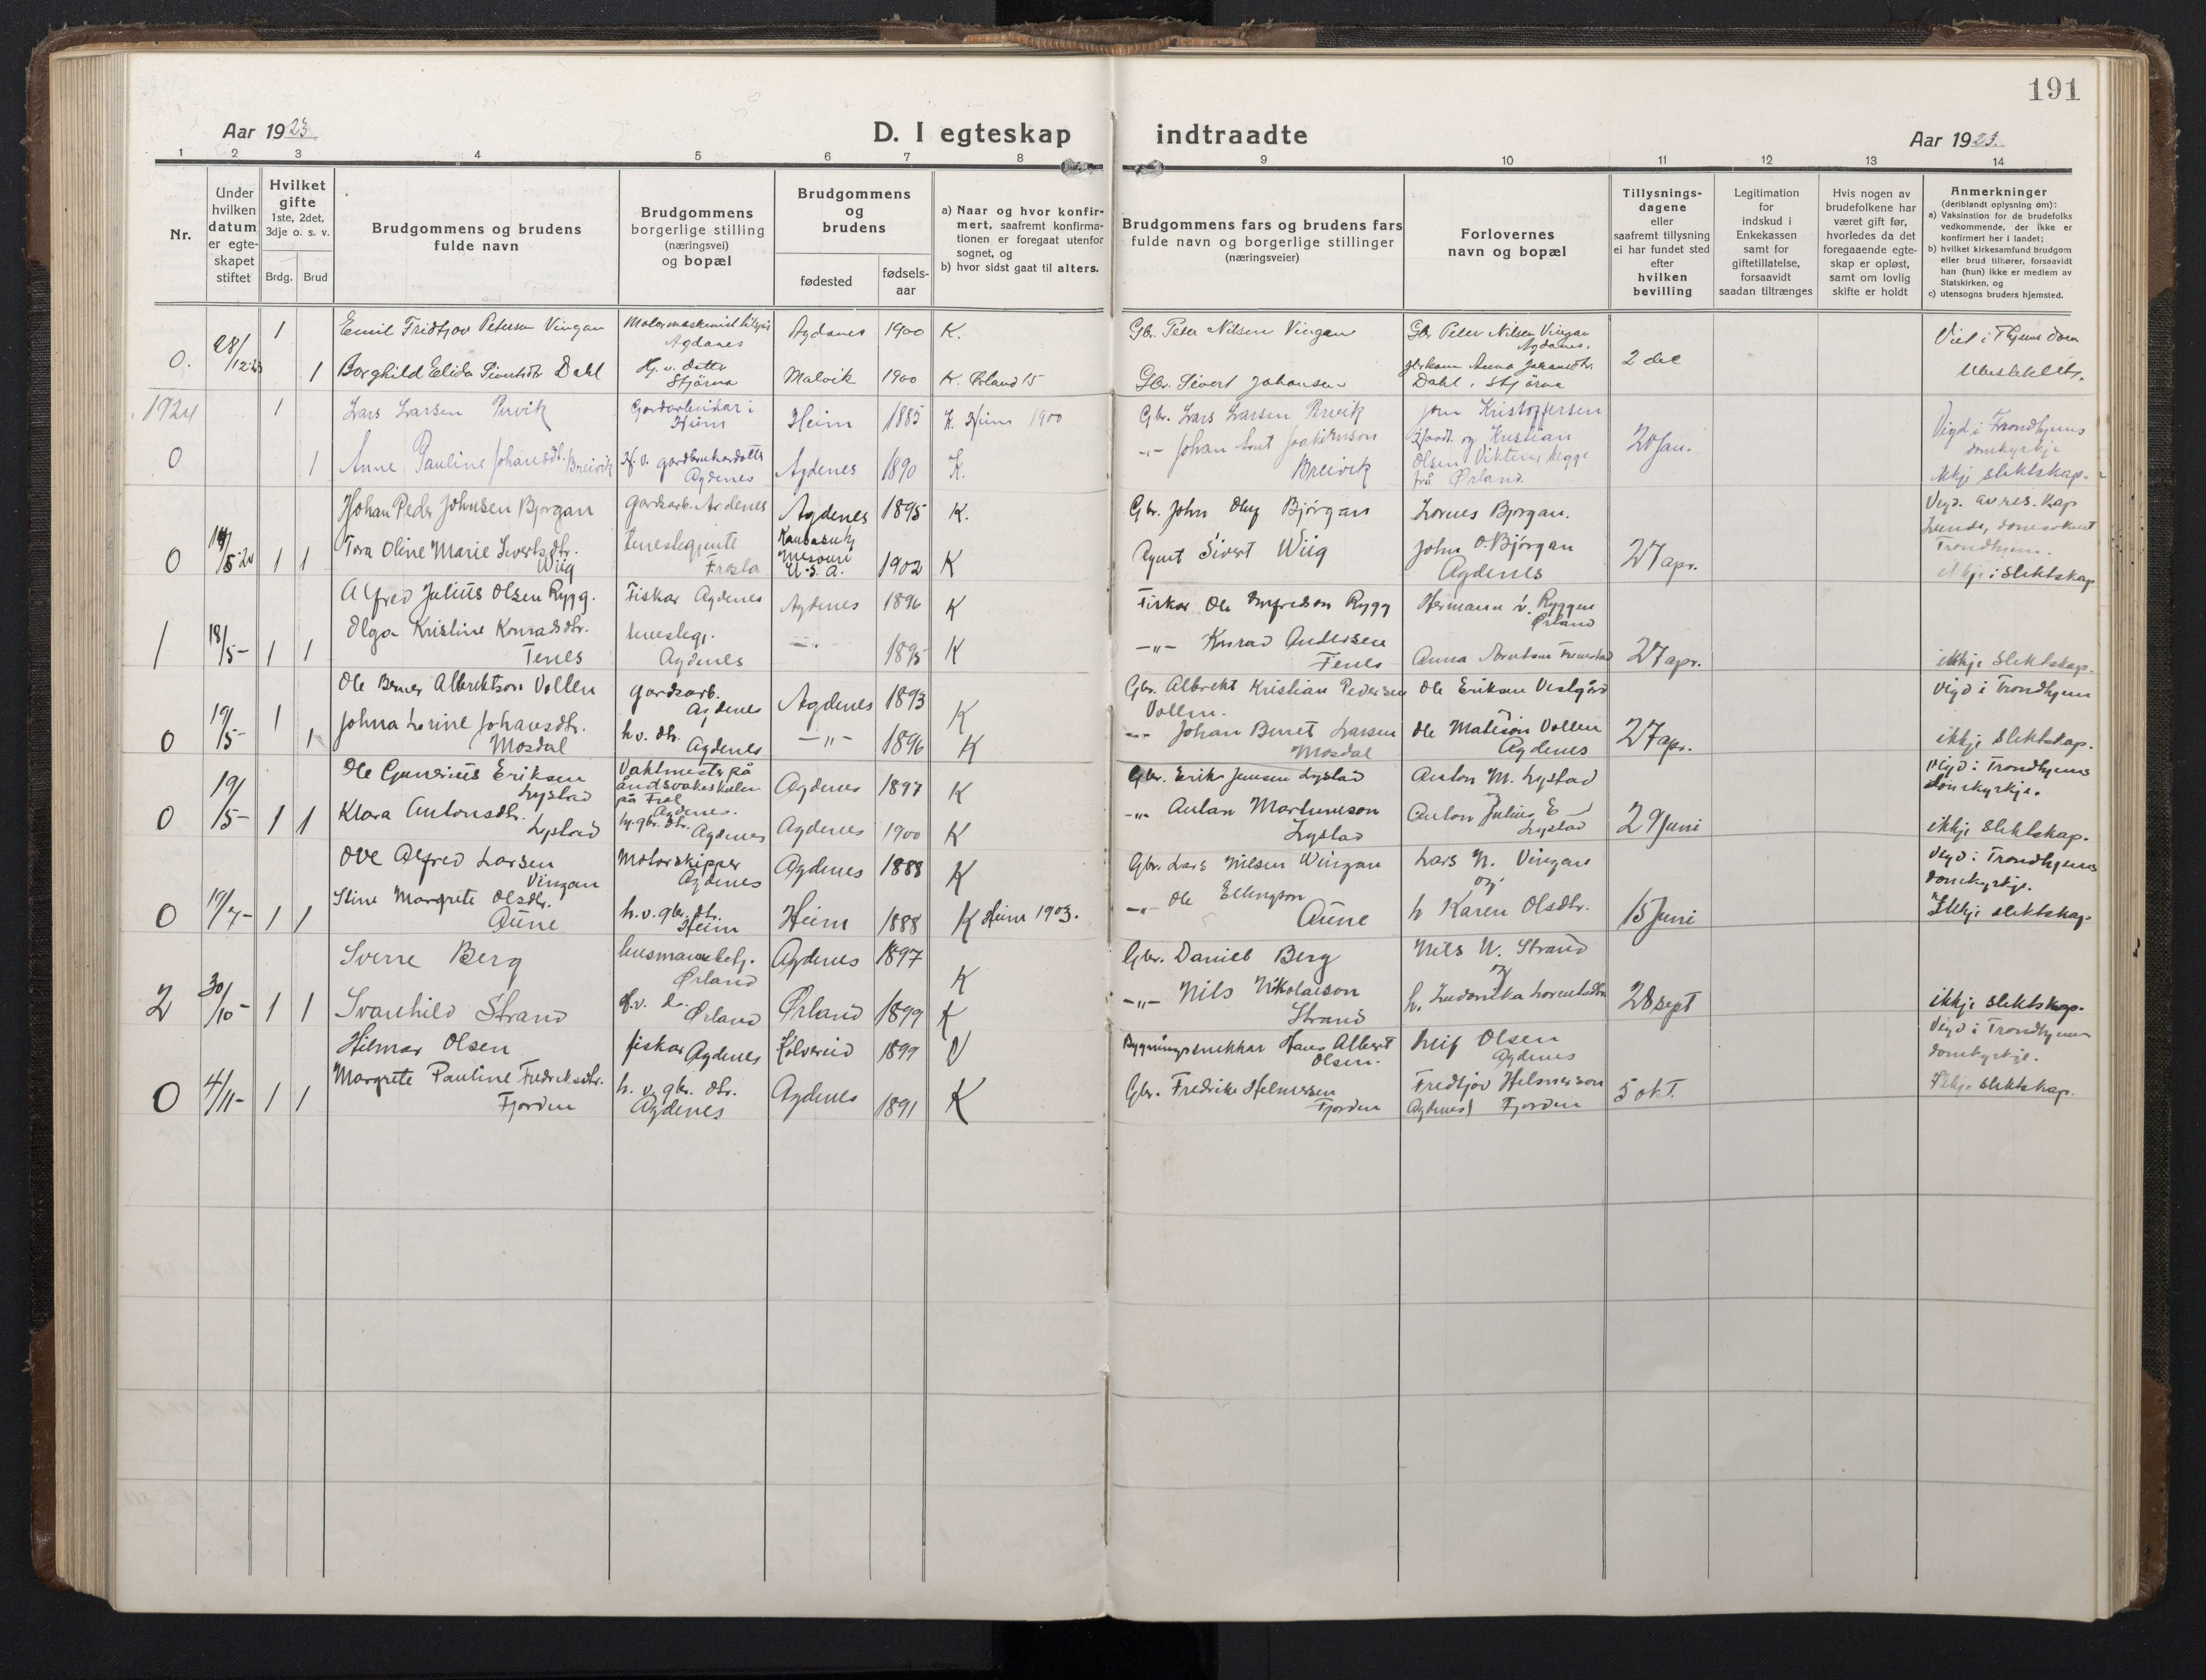 191
Aar 1923
D. I egteskap indtraadte
Aar 1923.
1 2 3 4 5 6 7 8 9 10 11 12 13 14
Nr.
Under
hvilken
datum
er egte-
skapet
stiftet
Hvilket
gifte
1ste, 2det,
3dje o. s. v.
Brdg. Brud
Brudgommens og brudens
fulde navn
Brudgommens
borgerlige stilling
(næringsvei)
og bopæl
Brudgommens
og
brudens
fødested
fødsels-
aar
a) Naar og hvor konfir-
mert, saafremt konfirma-
tionen er foregaat utenfor
sognet, og
b) hvor sidst gaat til alters.
Brudgommens fars og brudens fars
fulde navn og borgerlige stillinger
(næringsveier)
Forlovernes
navn og bopæl
Tillysnings-
dagene
eller
saafremt tillysning
ei har fundet sted
efter
hvilken
bevilling
Legitimation
for
indskud i
Enkekassen
samt for
giftetillatelse,
forsaavidt
saadan tiltrænges
Hvis nogen av
brudefolkene har
været gift før,
hvorledes da det
foregaaende egte-
skap er opløst,
samt om lovlig
skifte er holdt
Anmerkninger
(deriblandt oplysning om):
a) Vaksination for de brudefolks
vedkommende, der ikke er
konfirmert her i landet;
b) hvilket kirkesamfund brudgom
eller brud tilhører, forsaavidt
han (hun) ikke er medlem av
Statskirken, og
c) utensogns bruders hjemsted.
0. 28/12-23 1 Emil Fridtjov Petersen Vingan
Agdanes
Agdanes 1900 K.
Gbr. Peter Nilsen Vingan
Gbr Peter Nilsen Vingan
Agdanes.
1 Borghild Elida Sivertsdtr Dahl
Hj. v. datter
Stjörna
Malvik 1900 K. Örland 15
Gbr. Sivert Johansen
Anna Johansdtr.
Dahl, Stjörna
2 dec
Viet i Thjems dom
Ubeslektet.
1924
1 Lars Larsen
Gardarbeidar i
Heim
Heim 1885 K. Heim 1900
Gbr. Lars Larsen
Jon Kristoffersen
og Kristian
Olsen
frå Ørland.
0 1 Anne Pauline Johansdtr. Breivik
H. v. gardbrukardotter
Agdenes
Agdenes 1890 K.
-"- Johan Arnt
Breivik
20 Jan.
Vigd i Trondhjems
domkyrkje
ikkje slektskap.
Johan Peder Johnsen Bjørgan
Gardsarb. Agdenes
Agdenes 1895 K.
Gbr. John Oluf Bjørgan
Bjørgan.
0 1 1 Tora Oline Marie Sivertsdtr.
Wiig
tenestegjente
U.S.A. 1902 K
Agent Sivert Wiig
John O. Bjørgan
Agdenes
27 apr.
Vigd. av res. kap
Trondhjem.
ikkje i slektskap
Alfred Julius Olsen Rygg.
Fiskar Agdenes
Agdenes 1896 K
Fiskar Ole Rygg
Hermann
Ørland
1 18/5- 1 1 Olga Kristine Konradsdtr.
Tenes
tenestegj.
Agdenes
-"- 1895 K
-"- Konrad Andersen
Tenes
Anna
27 apr.
ikkje slektskap.
Ole Albrektson Vollen
gardsarb.
Agdenes
Agdenes 1893 K
Gbr. Albrekt Kristian Pedersen
Vollen.
Ole Eriksen
0 19/5- 1 1 Johna Lorine Johansdtr.
Mosdal
h.v. dtr.
Agdenes
-"- 1896 K
-"- Johan Larsen
Mosdal
Ole Vollen
Agdenes
27 apr.
Vigd i Trondhjem
ikkje slektskap.
Ole Gunerius Eriksen
Lystad
Agdenes.
Agdenes 1897 K
Gbr. Erik Jensen Lystad
Anton M. Lystad
og
0 19/5- 1 1 Klara Antonsdtr.
Lystad
h.v.gbr. dtr.
Agdenes
Agdenes 1900 K
-"- Anton
Lystad
Anton Julius E
Lystad
29 Juni
Vigd i Trondhjems
domkyrkje.
ikkje slektskap.
Ove Alfred Larsen
Vingan
Motorskipper
Agdenes
Agdenes 1888 K
Gbr. Lars Nilsen Vingan
Lars N. Vingan
og
0 19/7- 1 1 Stine Margrete Olsdtr.
Aune
h.v.gbr. dtr.
Heim
Heim 1888 K Heim 1903.
-"- Ole Ellingson
Aune
h Karen Olsdtr.
15 Juni
Vigd i Trondhjems
domkyrkje.
Ikkje slektskap.
Sverre Berg
Ørland
Agdenes 1897 K
Gbr. Daniel Berg
Nils N. Strand
og
2 30/10- 1 1 Svanhild Strand
H.v. d.
Ørland
Ørland 1899 K
-"- Nils Nikolaison
Strand
28 sept
ikkje slektskap.
Hilmar Olsen
fiskar Agdenes
Kolvereid 1899 V
Bygningssnikkar Hans Albert
Olsen.
Leif Olsen
Agdenes
0 4/11- 1 1 Margrete Pauline Fredriksdtr.
Fjorden
h. v. gbr. dtr.
Agdenes
Agdenes 1891 K
Gbr. Fredrik Helmersen
Fjorden
Fredtjov Helmerson
Agdenes Fjorden
5 okt.
Vigd i Trondhjem
domkyrkje.
Ikkje slektskap.